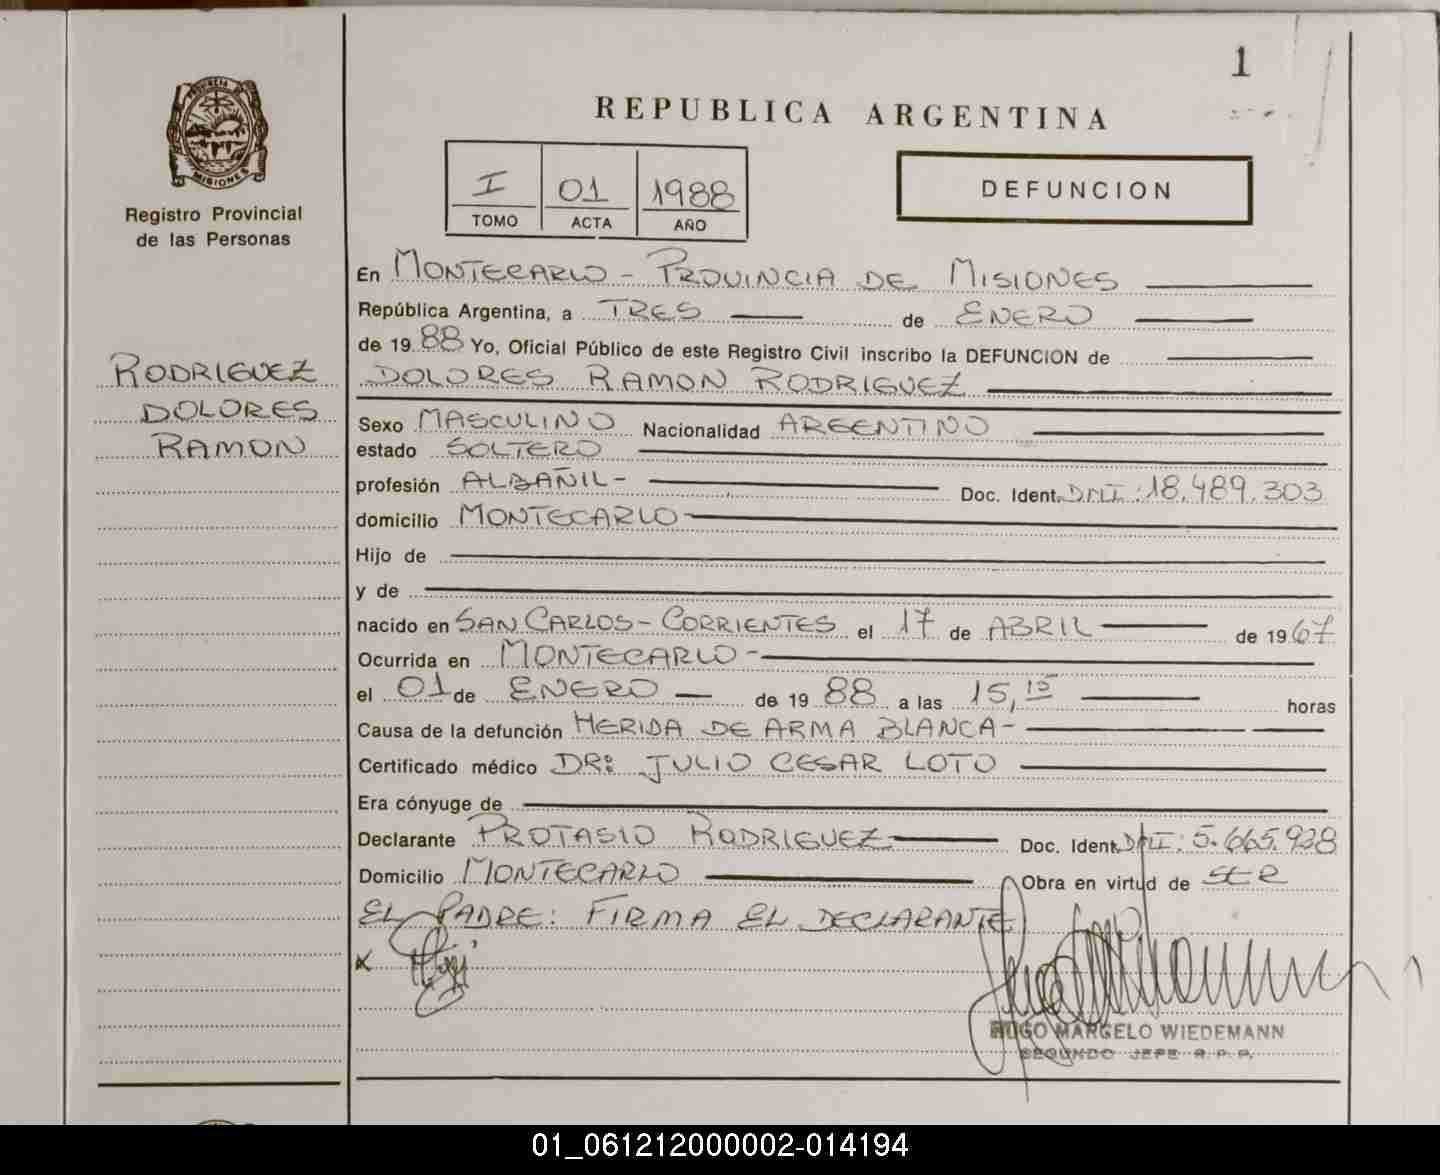 1
REPUBLICA ARGENTINA
PROVINCIA DE
MISIONES
Registro Provincial
de las Personas
I 01 1988
TOMO ACTA AÑO
DEFUNCION
RODRIGUEZ
DOLORES
RAMON
En MONTECARLO - PROVINCIA DE MISIONES
República Argentina, a TRES de ENERO
de 1988 Yo, Oficial Público de este Registro Civil inscribo la DEFUNCION de
DOLORES RAMON RODRIGUEZ
Sexo MASCULINO Nacionalidad ARGENTINO
estado SOLTERO
profesión ALBAÑIL- Doc. Ident. DNI: 18.489.303
domicilio MONTECARLO-
Hijo de
y de
nacido en SAN CARLOS - CORRIENTES el 17 de ABRIL de 1967
Ocurrida en MONTECARLO-
el 01 de ENERO de 1988 a las 15,15 horas
Causa de la defunción HERIDA DE ARMA BLANCA-
Certificado médico DR: JULIO CESAR LOTO
Era cónyuge de
Declarante PROTASIO RODRIGUEZ Doc. Ident. DNI: 5.665.928
Domicilio MONTECARLO Obra en virtud de SER
EL PADRE: FIRMA EL DECLARANTE
x
HUGO MARCELO WIEDEMANN
SEGUNDO JEFE R.P.P.
01_061212000002-014194